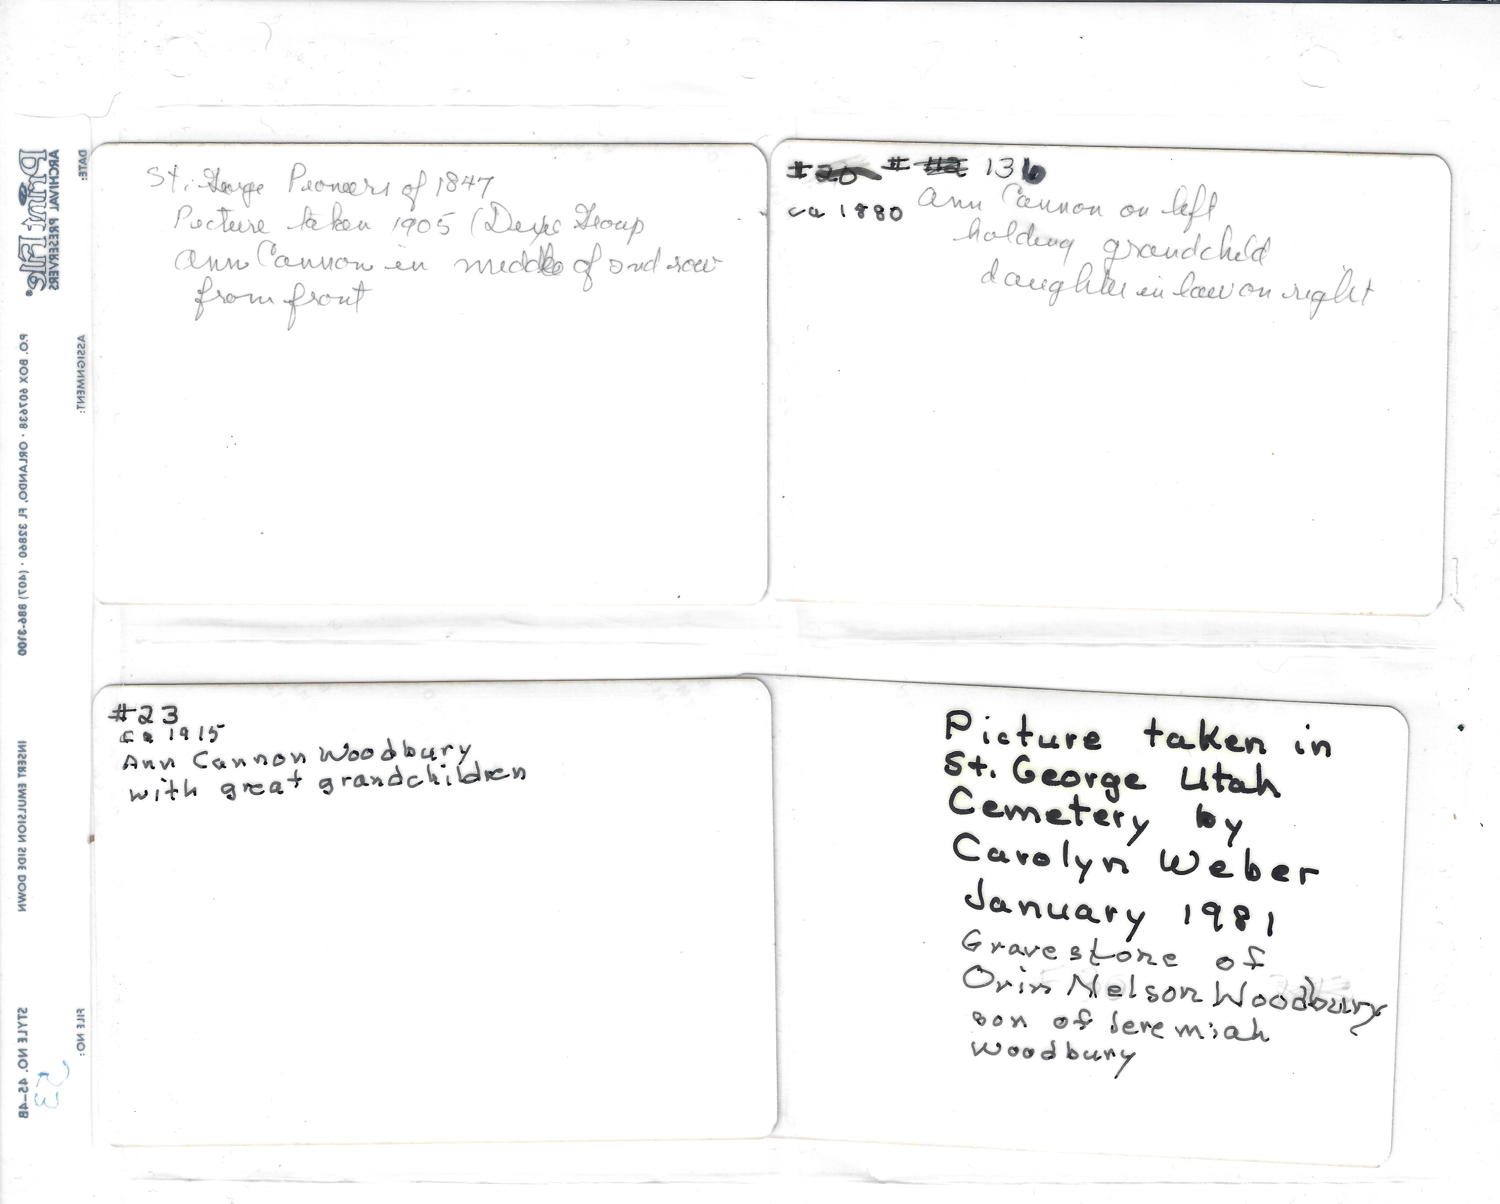 St. George Pioneers of 1847
Picture taken 1905 (Dixie Group
Ann Cannon in middle of 2nd row
from front
#20 # #2 136
ca 1880 Ann Cannon on left
holding grandchild
daughter in law on right
#23
ca 1915
Ann Cannon Woodbury
with great grandchildren
Picture taken in
St. George Utah
Cemetery by
Carolyn Weber
January 1981
Gravestone of
Orin Nelson Woodbury
son of Jeremiah
Woodbury
DATE:
ARCHIVAL PRESERVERS
Print File®
ASSIGNMENT:
P.O. BOX 607638 · ORLANDO, FL 32860 · (407) 886-3100
INSERT EMULSION SIDE DOWN
FILE NO:
STYLE NO. 45-4B
23